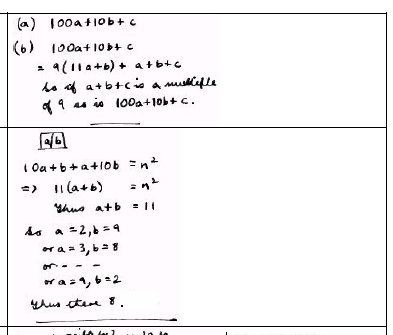 (a) 100a+10b+c
(b) 100a+10b+c
= 9(11a+b) + a+b+c
So if a+b+c is a multiple
of 9 so is 100a+10b+c.
a b
10a+b+a+10b = n²
=> 11(a+b) = n²
Thus a+b = 11
So a=2, b=9
or a=3, b=8
or - - -
or a=9, b=2
Thus there 8.